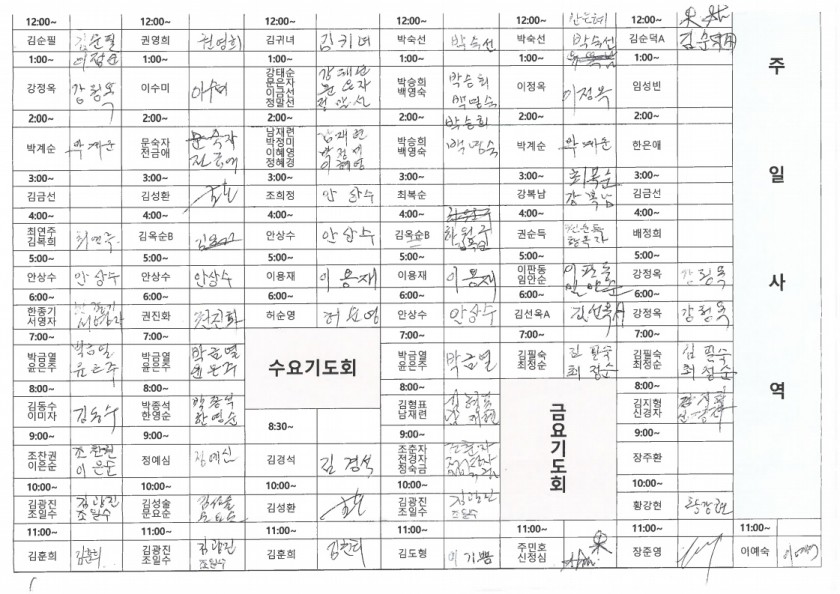 12:00~ 12:00~ 12:00~ 12:00~ 12:00~ 12:00~
김순필 김순필 권영희 권영희 김귀녀 김귀녀 박숙선 박숙선 박숙선 박숙선 김순덕A
1:00~ 1:00~ 1:00~ 1:00~ 1:00~ 1:00~
강정옥 강정옥 이수미 이수미 강태순 문은자 이금선 정말선 박승희 백영숙 박승희 백영숙 이정옥 이정옥 임성빈
2:00~ 2:00~ 2:00~ 2:00~ 2:00~ 2:00~
박계순 박계순 문숙자 전금애 문숙자 전금애 남재련 박정미 이혜영 정혜경 박승희 백영숙 박승희 백영숙 박계순 박계순 한은애
3:00~ 3:00~ 3:00~ 3:00~ 3:00~ 3:00~
김금선 김성환 조희정 안상수 최복순 강복남 최복순 강복남 김금선
4:00~ 4:00~ 4:00~ 4:00~ 4:00~ 4:00~
최연주 김복희 최연주 김옥순B 안상수 안상수 김옥순B 권순득 권순득 배정희
5:00~ 5:00~ 5:00~ 5:00~ 5:00~ 5:00~
안상수 안상수 안상수 안상수 이용재 이용재 이용재 이용재 이판동 임안순 이판동 임안순 강정옥 강정옥
6:00~ 6:00~ 6:00~ 6:00~ 6:00~ 6:00~
한종기 서영자 권진화 권진화 허순영 허순영 안상수 안상수 김선옥A 김선옥A 강정옥 강정옥
7:00~ 7:00~ 수요기도회 7:00~ 7:00~ 7:00~
박금열 윤은주 박금열 윤은주 박금열 윤은주 박금열 윤은주 박금열 윤은주 박금열 김필숙 최정순 김필숙 최정순 김필숙 최정순 김필숙 최정순
8:00~ 8:00~ 8:00~ 금요기도회 8:00~
김동수 이미자 김동수 박종석 한영순 박종석 한영순 김형표 남재련 김지형 신경자
9:00~ 9:00~ 8:30~ 9:00~ 9:00~
조찬권 이은순 조찬권 이은순 정예심 정예심 김경석 김경석 조춘자 전경자 정숙금 장주환
10:00~ 10:00~ 10:00~ 10:00~ 10:00~
김광진 조일수 김광진 조일수 김성술 문요순 김성술 문요순 김성환 김광진 조일수 김광진 조일수 황강현 황강현
11:00~ 11:00~ 11:00~ 11:00~ 11:00~ 11:00~ 11:00~
김훈희 김훈희 김광진 조일수 김광진 조일수 김훈희 김훈희 김도형 이기쁨 주민호 신정심 장준영 이예숙 이예숙
주일사역